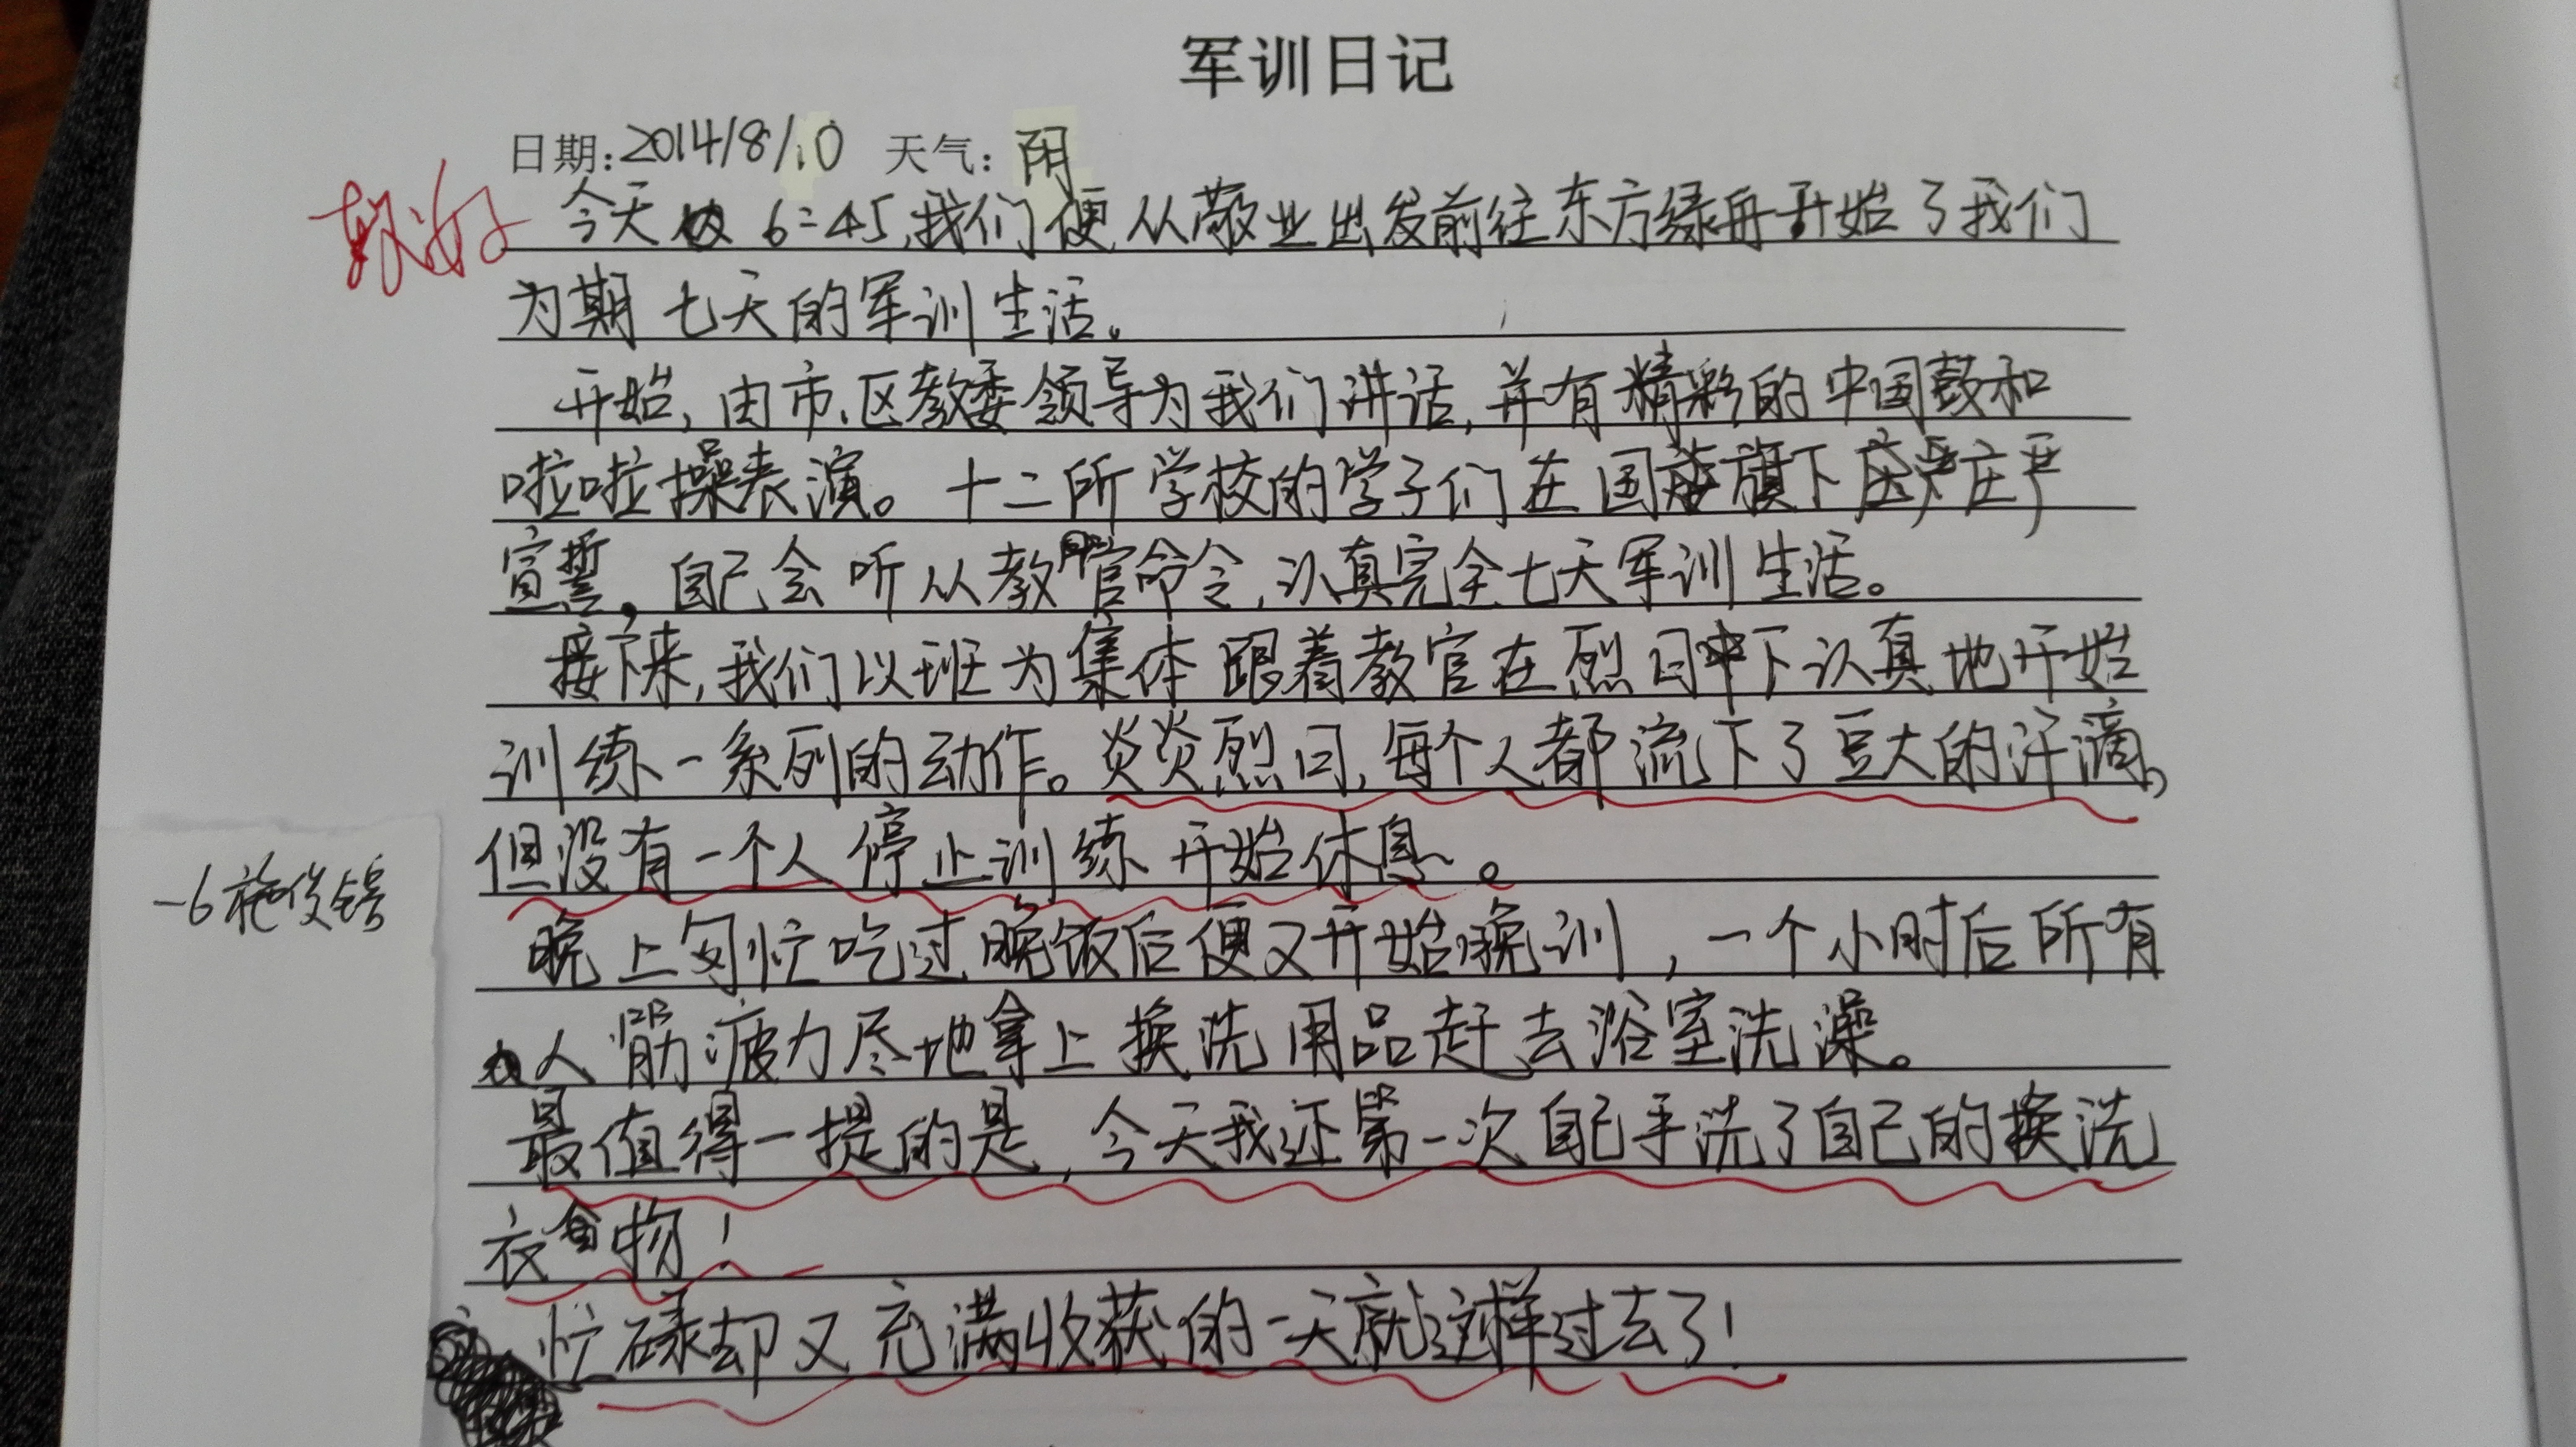 军训日记
日期:2014/8/10 天气:阴
今天6:45,我们便从敬业出发前往东方绿舟开始了我们
为期七天的军训生活。
开始,由市、区教委领导为我们讲话,并有精彩的中国鼓和
啦啦操表演。十二所学校的学子们在国旗下庄严
宣誓,自己会听从教官命令,认真完全七天军训生活。
接下来,我们以班为集体跟着教官在烈日下认真地开始
训练一系列的动作。炎炎烈日,每个人都流下了豆大的汗滴,
但没有一个人停止训练开始休息。
晚上匆忙吃过晚饭后便又开始晚训,一个小时后所有
人筋疲力尽地拿上换洗用品赶去浴室洗澡。
最值得一提的是,今天我还第一次自己手洗了自己的换洗
衣物!
忙碌却又充满收获的一天就这样过去了!
-6施俊